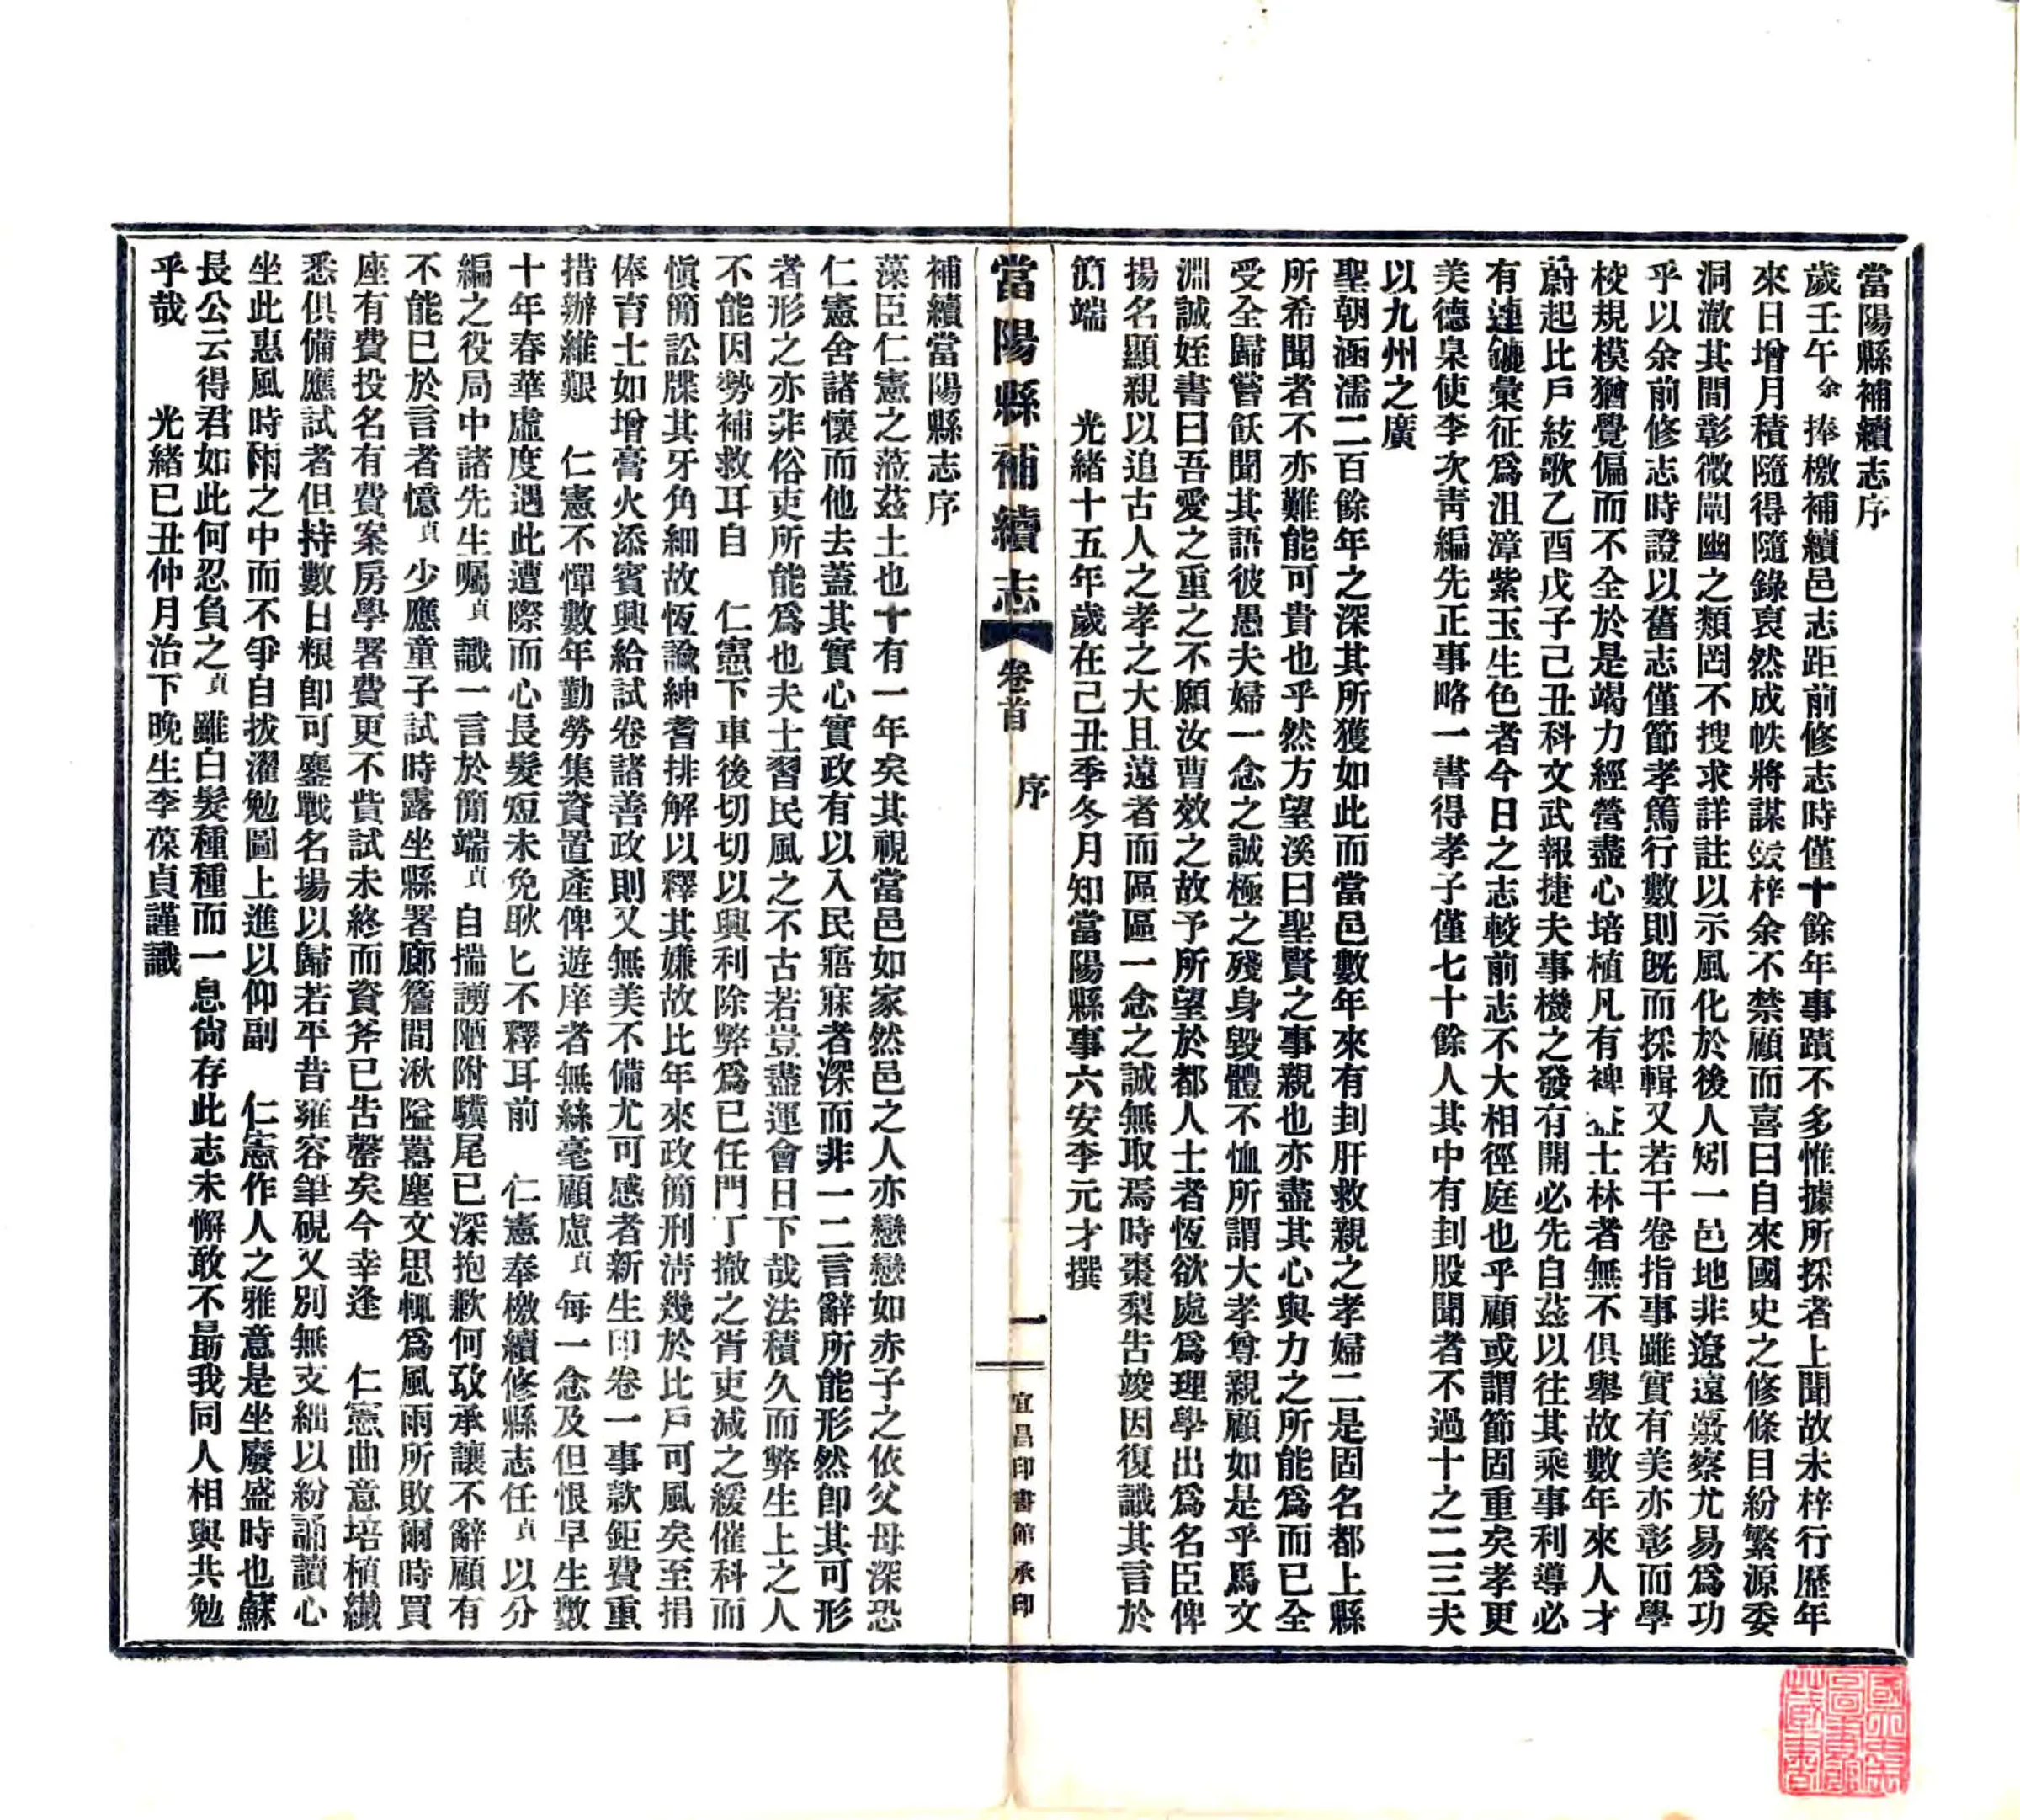 當陽縣補續志序
歲壬午余捧檄補續邑志距前修志時僅十餘年事蹟不多惟據所採者上聞故未梓行歷年
來日增月積隨得隨錄裒然成帙將謀災梓余不禁顧而喜曰自來國史之修條目紛繁源委
洞澈其間彰微闡幽之類罔不搜求詳註以示風化於後人矧一邑地非遼遠蒐察尤易爲功
乎以余前修志時證以舊志僅節孝篤行數則既而採輯又若干卷指事雖實有美亦彰而學
校規模猶覺偏而不全於是竭力經營盡心培植凡有裨益士林者無不俱舉故數年來人才
蔚起比戶絃歌乙酉戊子己丑科文武報捷夫事機之發有開必先自茲以往其乘事利導必
有連鑣彙征爲沮漳紫玉生色者今日之志較前志不大相徑庭也乎顧或謂節固重矣孝更
美德臬使李次青編先正事略一書得孝子僅七十餘人其中有刲股聞者不過十之二三夫
以九州之廣
聖朝涵濡二百餘年之深其所獲如此而當邑數年來有刲肝救親之孝婦二是固名都上縣
所希聞者不亦難能可貴也乎然方望溪曰聖賢之事親也亦盡其心與力之所能爲而已全
受全歸嘗飫聞其語彼愚夫婦一念之誠極之殘身毀體不恤所謂大孝尊親顧如是乎馬文
淵誡姪書曰吾愛之重之不願汝曹效之故予所望於都人士者恆欲處爲理學出爲名臣俾
揚名顯親以追古人之孝之大且遠者而區區一念之誠無取焉時棗梨告竣因復識其言於
簡端　光緒十五年歲在己丑季冬月知當陽縣事六安李元才撰
當陽縣補續志　卷首　序　一　宜昌印書館承印
補續當陽縣志序
藻臣仁憲之蒞茲土也十有一年矣其視當邑如家然邑之人亦戀戀如赤子之依父母深恐
仁憲舍諸懷而他去蓋其實心實政有以入民寤寐者深而非一二言辭所能形然卽其可形
者形之亦非俗吏所能爲也夫士習民風之不古若豈盡運會日下哉法積久而弊生上之人
不能因勢補救耳自　仁憲下車後切切以興利除弊爲已任門丁撤之胥吏減之緩催科而
愼簡訟牒其牙角細故恆諭紳耆排解以釋其嫌故比年來政簡刑淸幾於比戶可風矣至捐
俸育士如增膏火添賓興給試卷諸善政則又無美不備尤可感者新生印卷一事款鉅費重
措辦維艱　仁憲不憚數年勤勞集資置產俾遊庠者無絲毫顧慮貞每一念及但恨早生數
十年春華虛度遇此遭際而心長髮短未免耿匕不釋耳前　仁憲奉檄續修縣志任貞以分
編之役局中諸先生囑貞識一言於簡端貞自揣謭陋附驥尾已深抱歉何敢承讓不辭顧有
不能已於言者憶貞少應童子試時露坐縣署廊簷間湫隘囂塵文思輒爲風雨所敗爾時買
座有費投名有費案房學署費更不貲試未終而資斧已告罄矣今幸逢　仁憲曲意培植纖
悉俱備應試者但持數日粻卽可鏖戰名場以歸若平昔雍容筆硯又別無支絀以紛誦讀心
坐此惠風時雨之中而不爭自拔濯勉圖上進以仰副　仁憲作人之雅意是坐廢盛時也蘇
長公云得君如此何忍負之貞雖白髮種種而一息尙存此志未懈敢不勗我同人相與共勉
乎哉　光緒已丑仲月治下晚生李葆貞謹識